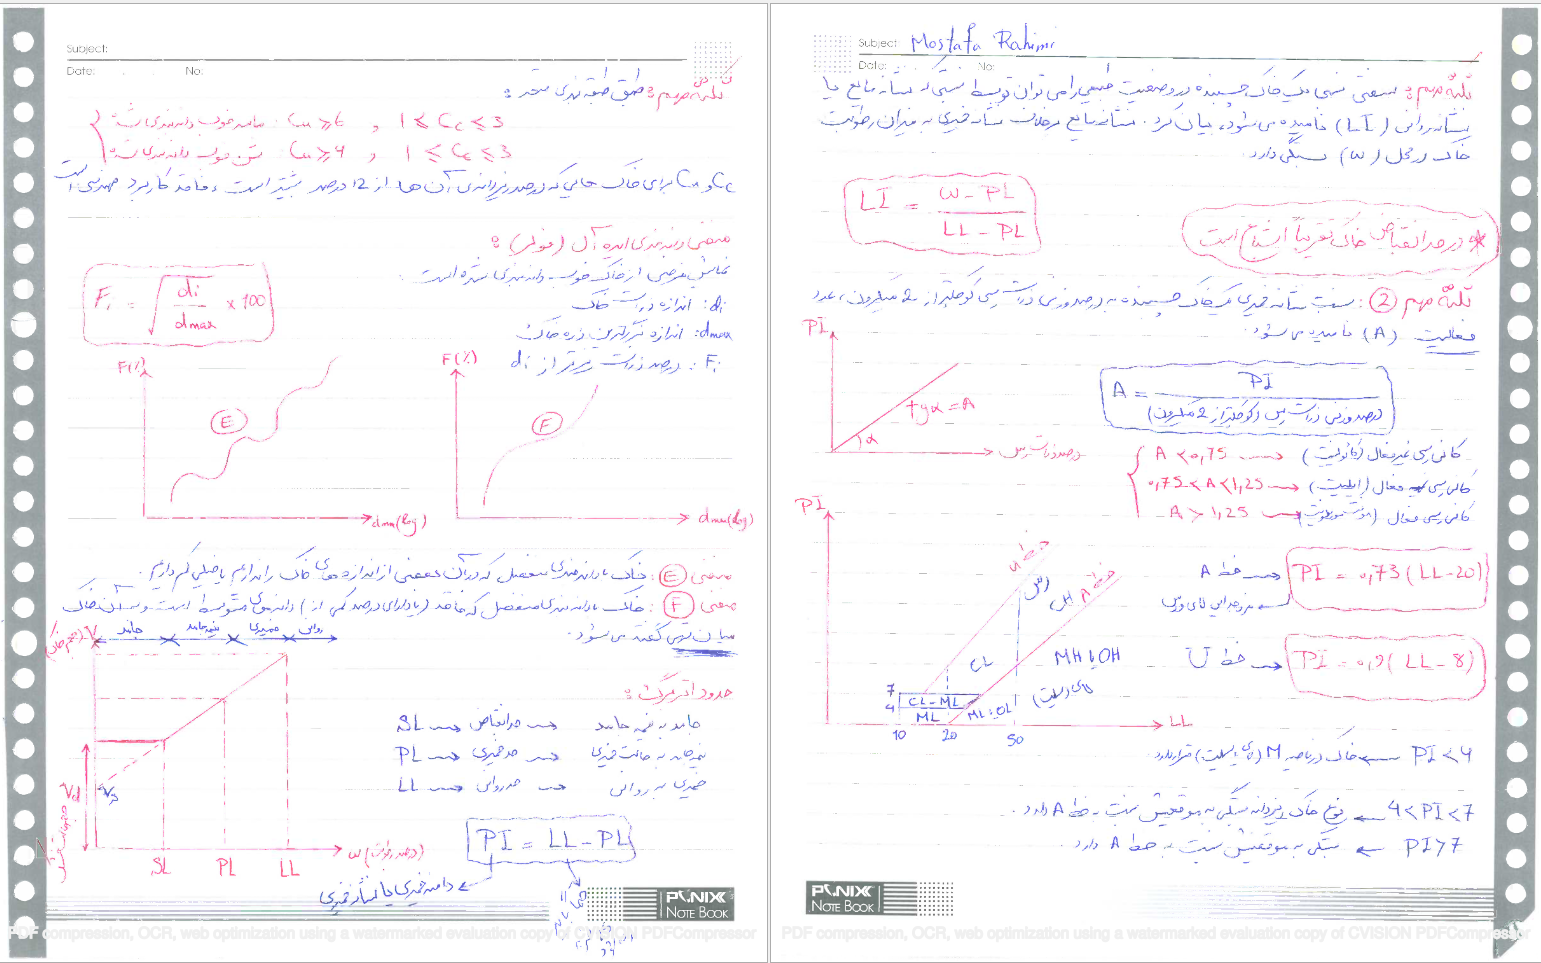 Subject:
Date: No:
نکته مهم: طبق طبقه‌بندی متحد:
ماسه خوب دانه‌بندی شده: Cu ≥ 6 , 1 ≤ Cc ≤ 3
شن خوب دانه‌بندی شده: Cu ≥ 4 , 1 ≤ Cc ≤ 3
Cc و Cu برای خاک هایی که درصد ریزدانه‌ی آن ها از 12 درصد بیشتر است، فاقد کاربرد مهندسی است
منحنی دانه‌بندی ایده آل (فولر):
نمایش فرضی از خاک خوب دانه‌بندی شده است
Fi = √(di / dmax) × 100
di: اندازه ذرات خاک
dmax: اندازه بزرگترین ذره خاک
Fi: درصد ذرات ریزتر از di
F(%) E dmm(log)
F(%) F dmm(log)
منحنی E: خاک با دانه‌بندی منفصل که در آن بعضی از اندازه های خاک را نداریم یا خیلی کم داریم.
منحنی F: خاک با دانه‌بندی منفصل که فاقد (یا دارای درصد کمی از) دانه‌های متوسط است و به آن خاک
میان تهی گفته می شود.
V (حجم خاک)
جامد نیمه جامد خمیری روانی
Vd Vs
SL PL LL ω (درصد رطوبت)
حدود اتربرگ:
جامد به نیمه جامد → حد انقباض → SL
نیمه جامد به حالت خمیری → حد خمیری → PL
خمیری به روانی → حد روانی → LL
PI = LL - PL
دامنه خمیری یا نشانه خمیری
P.NIX
NOTE BOOK
PDF compression, OCR, web optimization using a watermarked evaluation copy of CVISION PDFCompressor
Subject: Mostafa Rahimi
Date: No:
نکته مهم: سفتی نسبی یک خاک چسبنده در وضعیت طبیعی را می توان توسط نسبتی که نشانه مایع یا
نشانه روانی (LI) نامیده می شود، بیان کرد. نشانه مایع برخلاف نشانه خمیری به میزان رطوبت
خاک در محل (ω) بستگی دارد.
LI = ω - PL / LL - PL
* در حد انقباض خاک تقریباً اشباع است
نکته مهم 2: نسبت نشانه خمیری یک خاک چسبنده به درصد وزنی ذرات رسی کوچکتر از 2 میکرون، عدد
فعالیت (A) نامیده می شود.
PI
tgα = A
α
درصد ذرات رس
A = PI / (درصد وزنی ذرات رس (کوچکتر از 2 میکرون))
کانی رسی غیرفعال (کائولینیت) → A < 0,75
کانی رسی نیمه فعال (ایلیت) → 0,75 < A < 1,25
کانی رسی فعال (مونت موریلونیت) → A > 1,25
PI
خط U
خط A
رس CH
CL
MH یا OH
(لای، سیلت)
7
4
CL-ML
ML
ML یا OL
10 20 50
LL
خط A → PI = 0,73 (LL - 20)
مرز جدایی لای و رس
خط U → PI = 0,9 (LL - 8)
PI < 4 ← خاک در ناحیه M (لای یا سیلت) قرار دارد.
4 < PI < 7 ← نوع خاک ریزدانه بستگی به موقعیتش نسبت به خط A دارد.
PI > 7 ← بستگی به موقعیتش نسبت به خط A دارد.
P.NIX
NOTE BOOK
PDF compression, OCR, web optimization using a watermarked evaluation copy of CVISION PDFCompressor